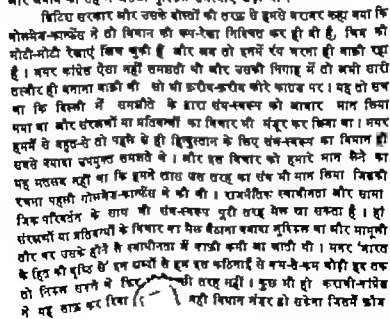 ब्रिटिश सरकार और उसके दोस्तों की तरफ़ से हमसे बराबर कहा गया कि
गोलमेज़-कान्फ्रेंस ने तो विधान की रूप-रेखा निश्चित कर ही दी है, चित्र की
मोटी-मोटी रेखाएं खिंच चुकी हैं और अब तो इनमें रंग भरना ही बाक़ी रहा
है । मगर कांग्रेस ऐसा नहीं समझती थी और उसकी निगाह में तो अभी सारी
तस्वीर ही बनाना बाक़ी थी सो भी क़रीब-क़रीब कोरे काग़ज़ पर । यह तो सच
था कि दिल्ली में समझौते के द्वारा संघ-स्वरूप को आधार मान लिया
गया था और संरक्षणों या प्रतिबन्धों का विचार भी मंजूर कर लिया था । मगर
हममें से बहुत-से तो पहले से ही हिन्दुस्तान के लिए संघ-स्वरूप का विधान ही
सबसे ज्यादा उपयुक्त समझते थे । और इस विचार को हमारे मान लेने का
यह मतलब नहीं था कि हमने खास उस तरह का संघ भी मान लिया जिसकी
रचना पहली गोलमेज़-कान्फ्रेंस ने की थी । राजनैतिक स्वाधीनता और सामा
जिक परिवर्तन के साथ भी संघ-स्वरूप पूरी तरह मेल खा सकता है । हां
संरक्षणों या प्रतिबन्धों के विचार का मेल बैठाना ज्यादा मुश्किल था और मामूली
तौर पर उसके होने से स्वाधीनता में काफ़ी कमी आ जाती थी । मगर 'भारत
के हित की दृष्टि से' इन शब्दों से हम इस कठिनाई से कम-से-कम थोड़ी हद तक
तो निकल सकते थे फिर तरह नहीं । कुछ भी हो कराची-कांग्रेस
ने यह साफ़ कर दिया वही विधान मंजूर हो सकेगा जिसमें फ़ौज